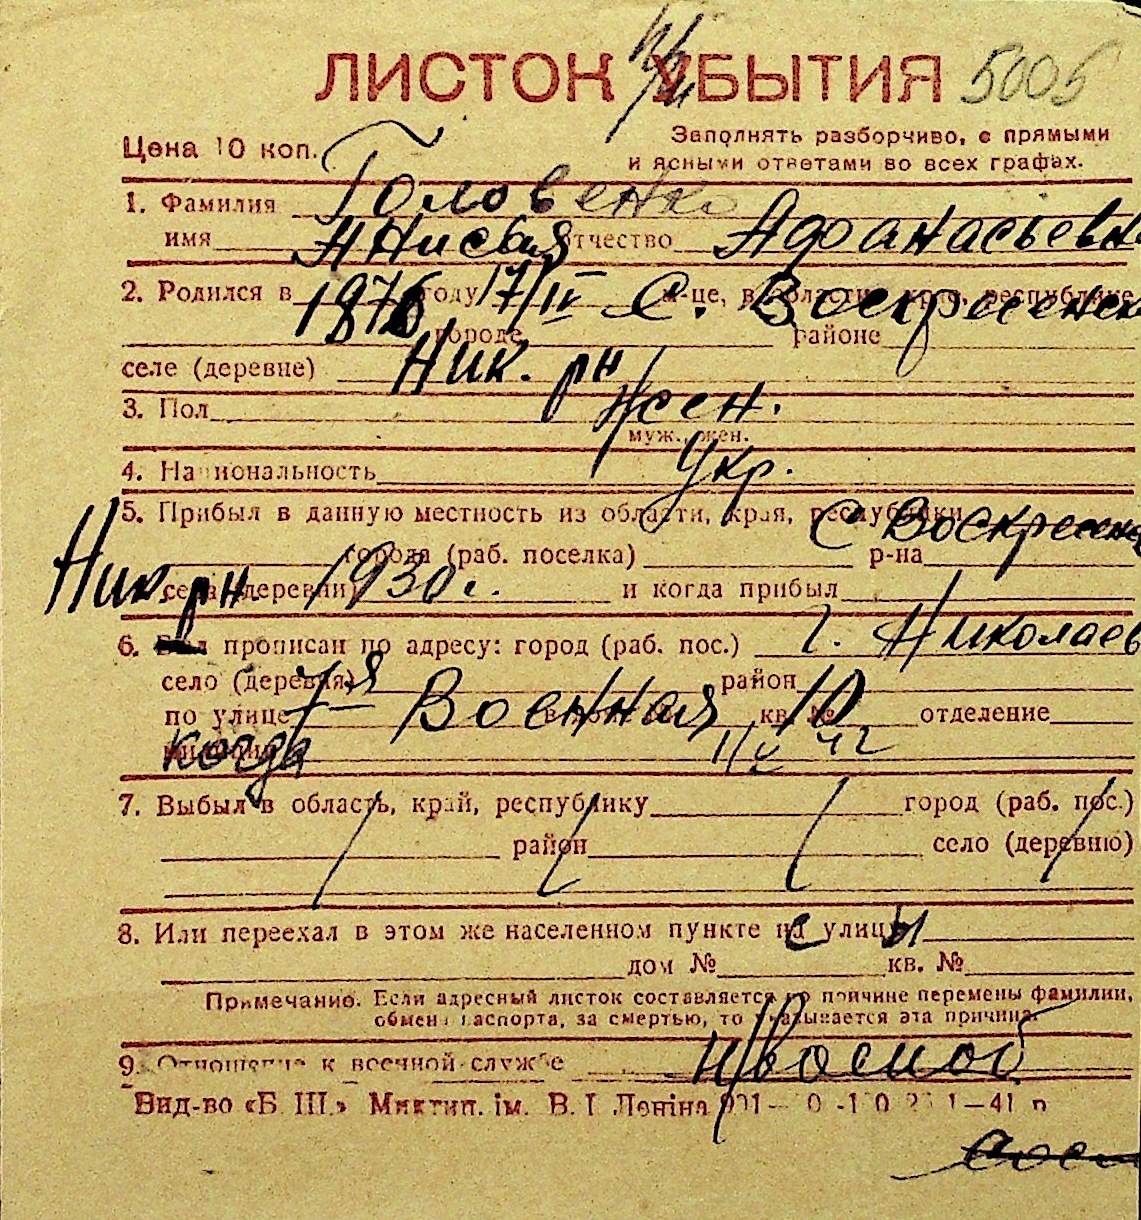 ЛИСТОК УБЫТИЯ 5005
Цена 10 коп.
Заполнять разборчиво, с прямыми
и ясными ответами во всех графах.
1. Фамилия Головенко
имя Анисья отчество Афанасьевна
2. Родился в 1876 году 17/IV м-це, в области, крае, республике С. Воскресенск
городе районе
селе (деревне) Ник. рн
3. Пол жен.
муж., жен.
4. Национальность Укр.
5. Прибыл в данную местность из области, края, республики С Воскресенск
города (раб. поселка) р-на
Ник. рн. села (деревни) 1930 г. и когда прибыл
6. прописан по адресу: город (раб. пос.) г. Николаев
село (деревня) район
по улице 7-я Военная кв. № 10 отделение
когда 11/V 42
7. Выбыл в область, край, республику город (раб. пос.)
район село (деревню)
8. Или переехал в этом же населенном пункте с улицы
дом № кв. №
Примечание. Если адресный листок составляется по причине перемены фамилии,
обмена паспорта, за смертью, то указывается эта причина.
9. Отношение к военной службе н/воен об.
Вид-во «Б. Ш.» Миктип. ім. В. І. Леніна